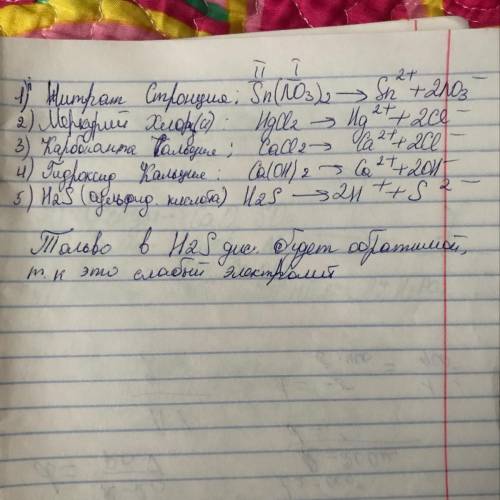 II I
1) Нитрат Стронция; Sn(NO3)2 → Sn2+ + 2NO3-
2) Меркурий Хлор(II): HgCl2 → Hg2+ + 2Cl-
3) Карбонанта Кальция; CaCl2 → Ca2+ + 2Cl-
4) Гидроксид Кальция: Ca(OH)2 → Ca2+ + 2OH-
5) H2S (сульфид. кислота) H2S → 2H+ + S2-
Только в H2S дис. будет обратимой,
т.к это слабый электролит